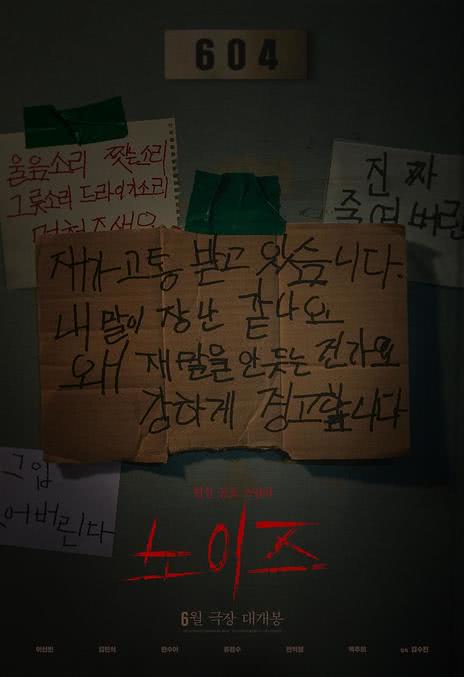 604
울음소리 찢는소리
그릇소리 드라이기소리
멈춰주세요
진짜
죽여버린
재가 고통 받고 있습니다.
내 말이 장난 같나요.
왜 재 말을 안 듯는 건가요
강하게 경고합니다
그입
어버린다
현실 공포 스릴러
노이즈
6월 극장 대개봉
이선빈 김민석 한수아 류경수 전익령 백주희 그리고 김수진